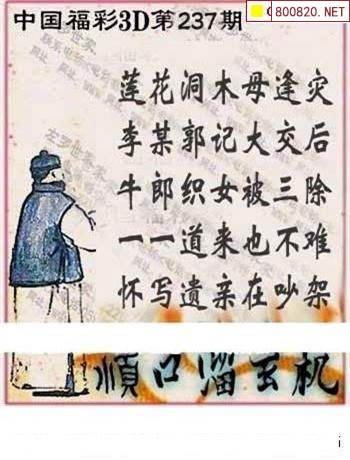 800820.NET
中国福彩3D第237期
莲花洞木母逢灾
李某郭记大交后
牛郎织女被三除
一一道来也不难
怀写遗亲在吵架
顺口溜玄机